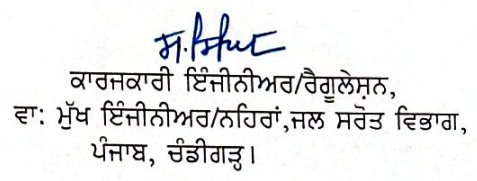 ਕਾਰਜਕਾਰੀ ਇੰਜੀਨੀਅਰ/ਰੈਗੂਲੇਸ਼ਨ,
ਵਾ: ਮੁੱਖ ਇੰਜੀਨੀਅਰ/ਨਹਿਰਾਂ,ਜਲ ਸਰੋਤ ਵਿਭਾਗ,
ਪੰਜਾਬ, ਚੰਡੀਗੜ੍ਹ।